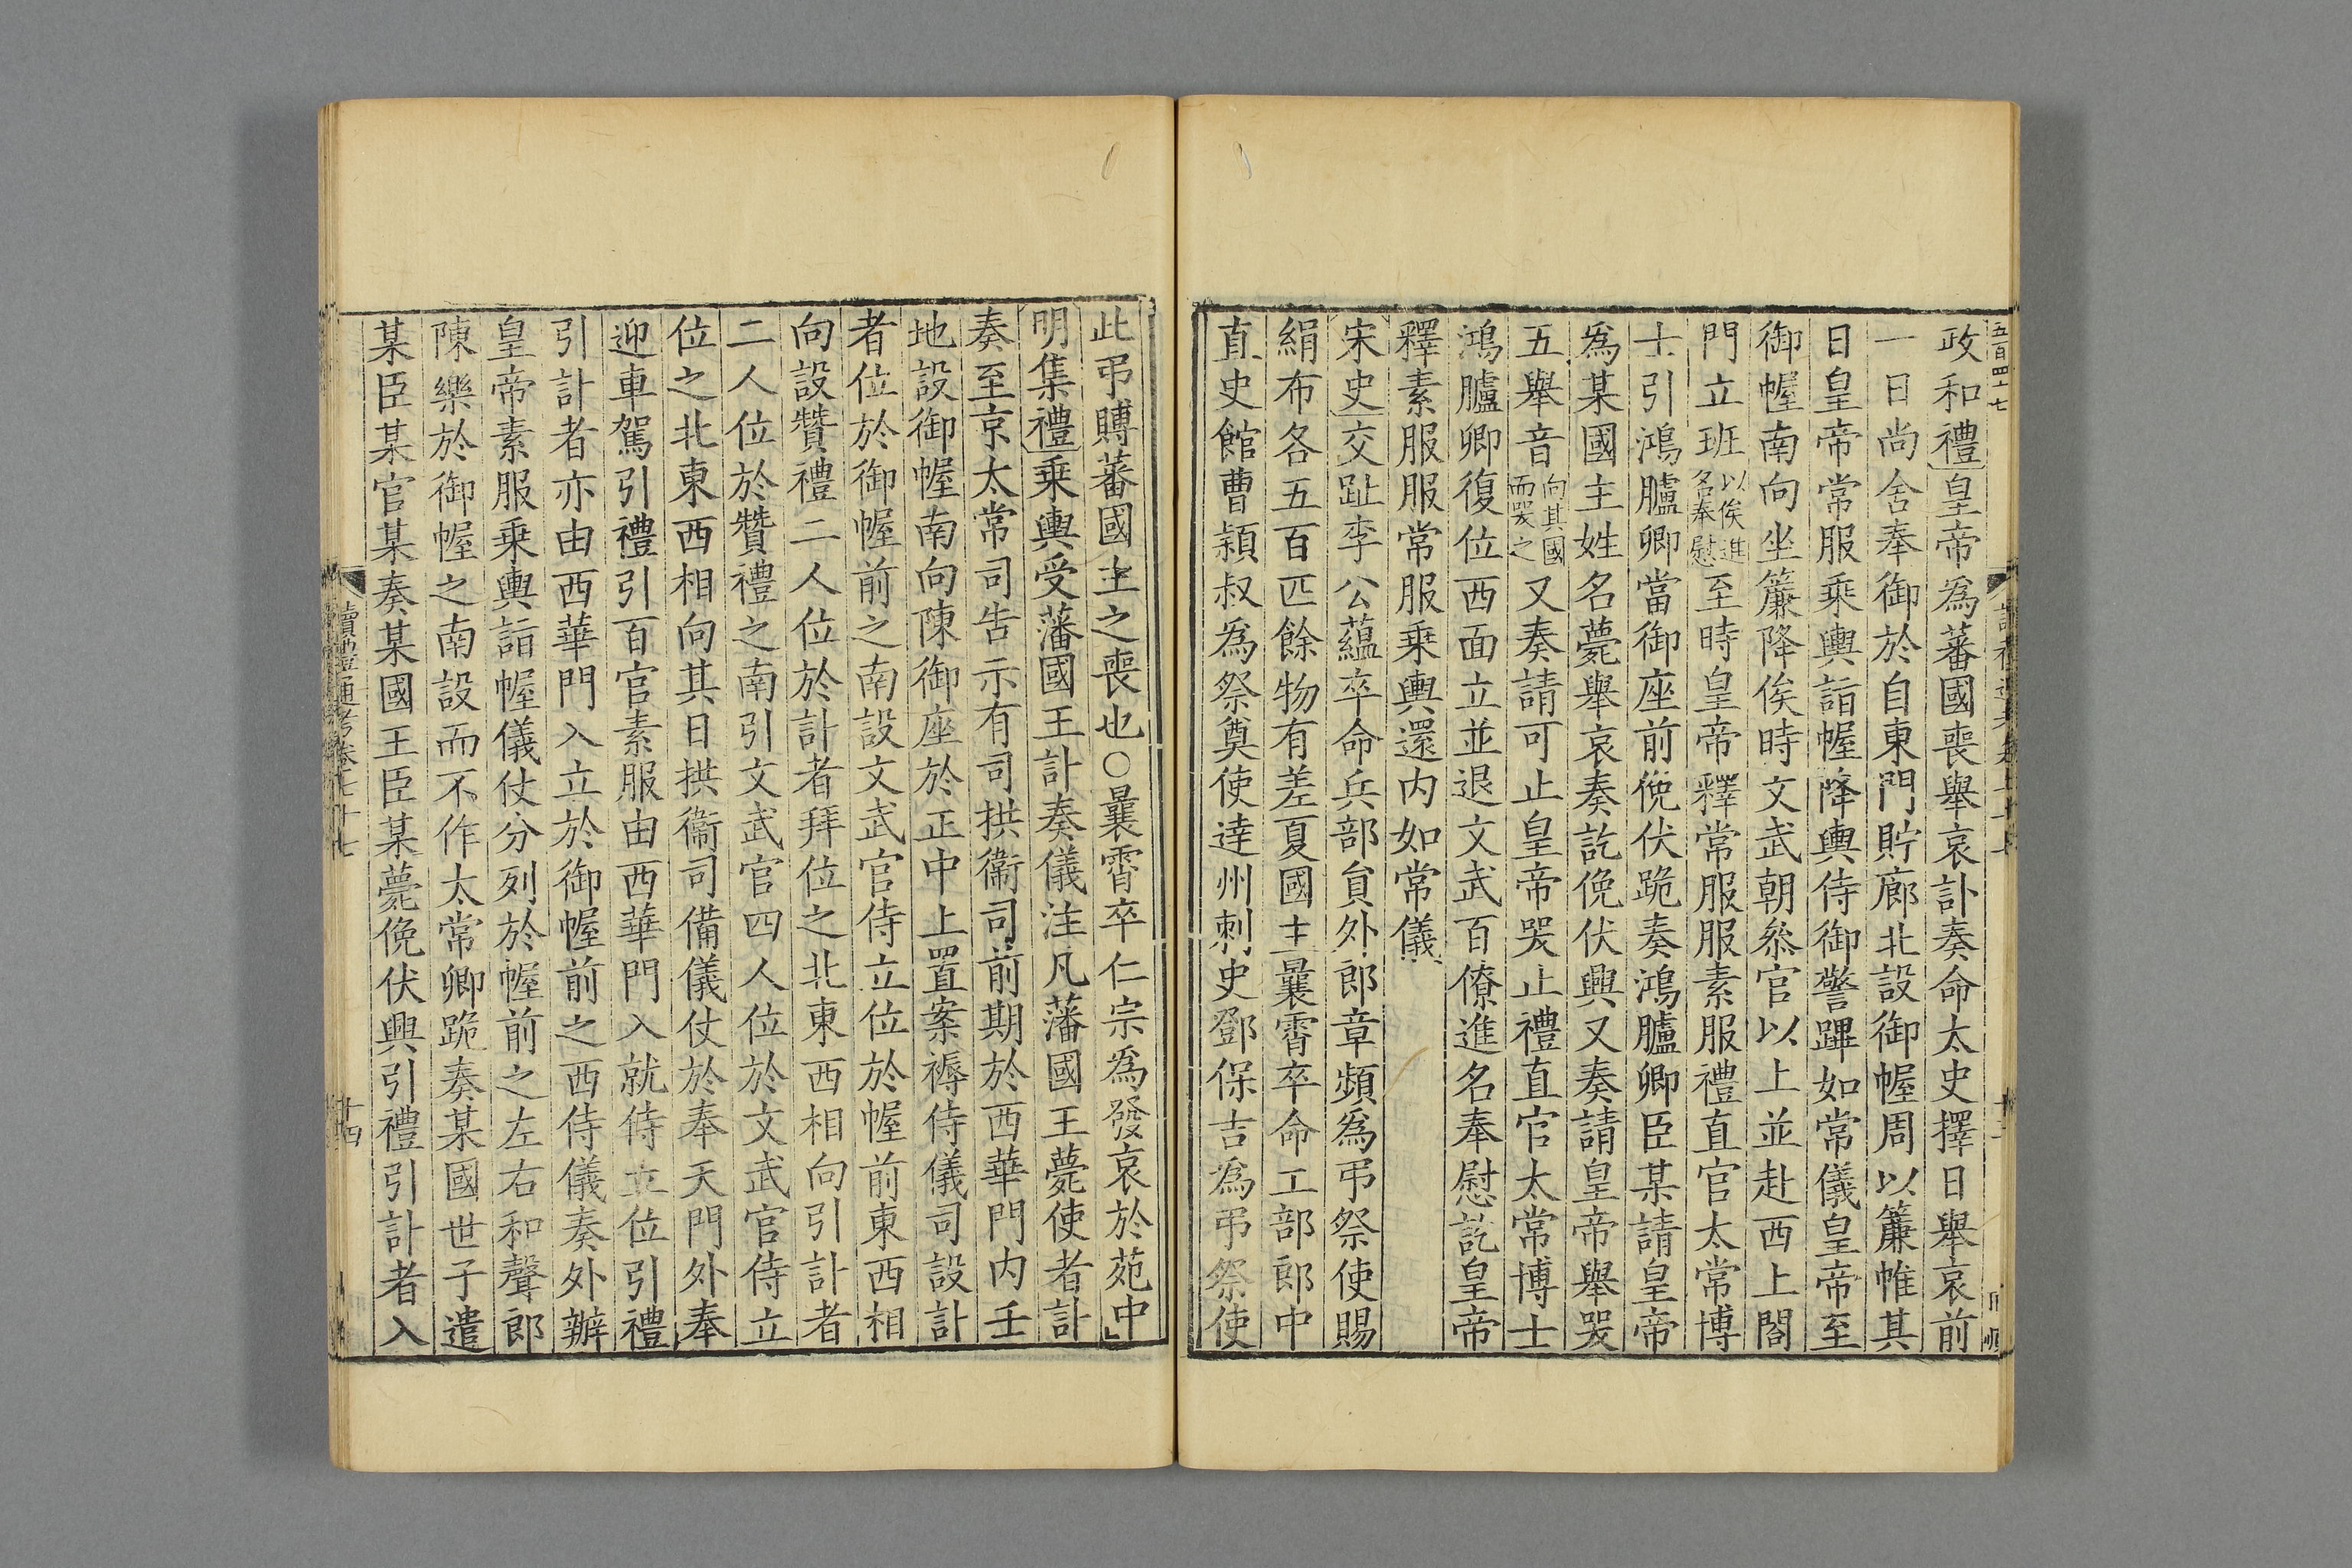 五百四十七
政和禮皇帝爲蕃國喪舉哀訃奏命太史擇日舉哀前
一日尚舍奉御於自東門貯廊北設御幄周以簾帷其
日皇帝常服乘輿詣幄降輿侍御警蹕如常儀皇帝至
御幄南向坐簾降俟時文武朝叅官以上並赴西上閤
門立班以俟進名奉慰至時皇帝釋常服服素服禮直官太常博
士引鴻臚卿當御座前俛伏跪奏鴻臚卿臣某請皇帝
爲某國主姓名薨舉哀奏訖俛伏興又奏請皇帝舉哭
五舉音向其國而哭之又奏請可止皇帝哭止禮直官太常博士
鴻臚卿復位西面立並退文武百僚進名奉慰訖皇帝
釋素服服常服乗輿還内如常儀
宋史交趾李公蘊卒命兵部貟外郎章頻爲弔祭使賜
絹布各五百匹餘物有差夏國主曩霄卒命工部郎中
直史館曹穎叔爲祭奠使達州刺史鄧保吉爲弔祭使
此弔賻蕃國主之喪也○曩霄卒仁宗爲發哀於苑中
明集禮乗輿受藩國王計奏儀注凡藩國王薨使者計
奏至京太常司告示有司拱衞司前期於西華門内壬
地設御幄南向陳御座於正中上置案褥侍儀司設計
者位於御幄前之南設文武官侍立位於幄前東西相
向設贊禮二人位於計者拜位之北東西相向引計者
二人位於贊禮之南引文武官四人位於文武官侍立
位之北東西相向其日拱衞司備儀仗於奉天門外奉
迎車駕引禮引百官素服由西華門入就侍立位引禮
引計者亦由西華門入立於御幄前之西侍儀奏外辦
皇帝素服乗輿詣幄儀仗分列於幄前之左右和聲郎
陳樂於御幄之南設而不作太常卿跪奏某國世子遣
某臣某官某奏某國王臣某薨俛伏興引禮引計者入
讀禮通考卷七十七
十四